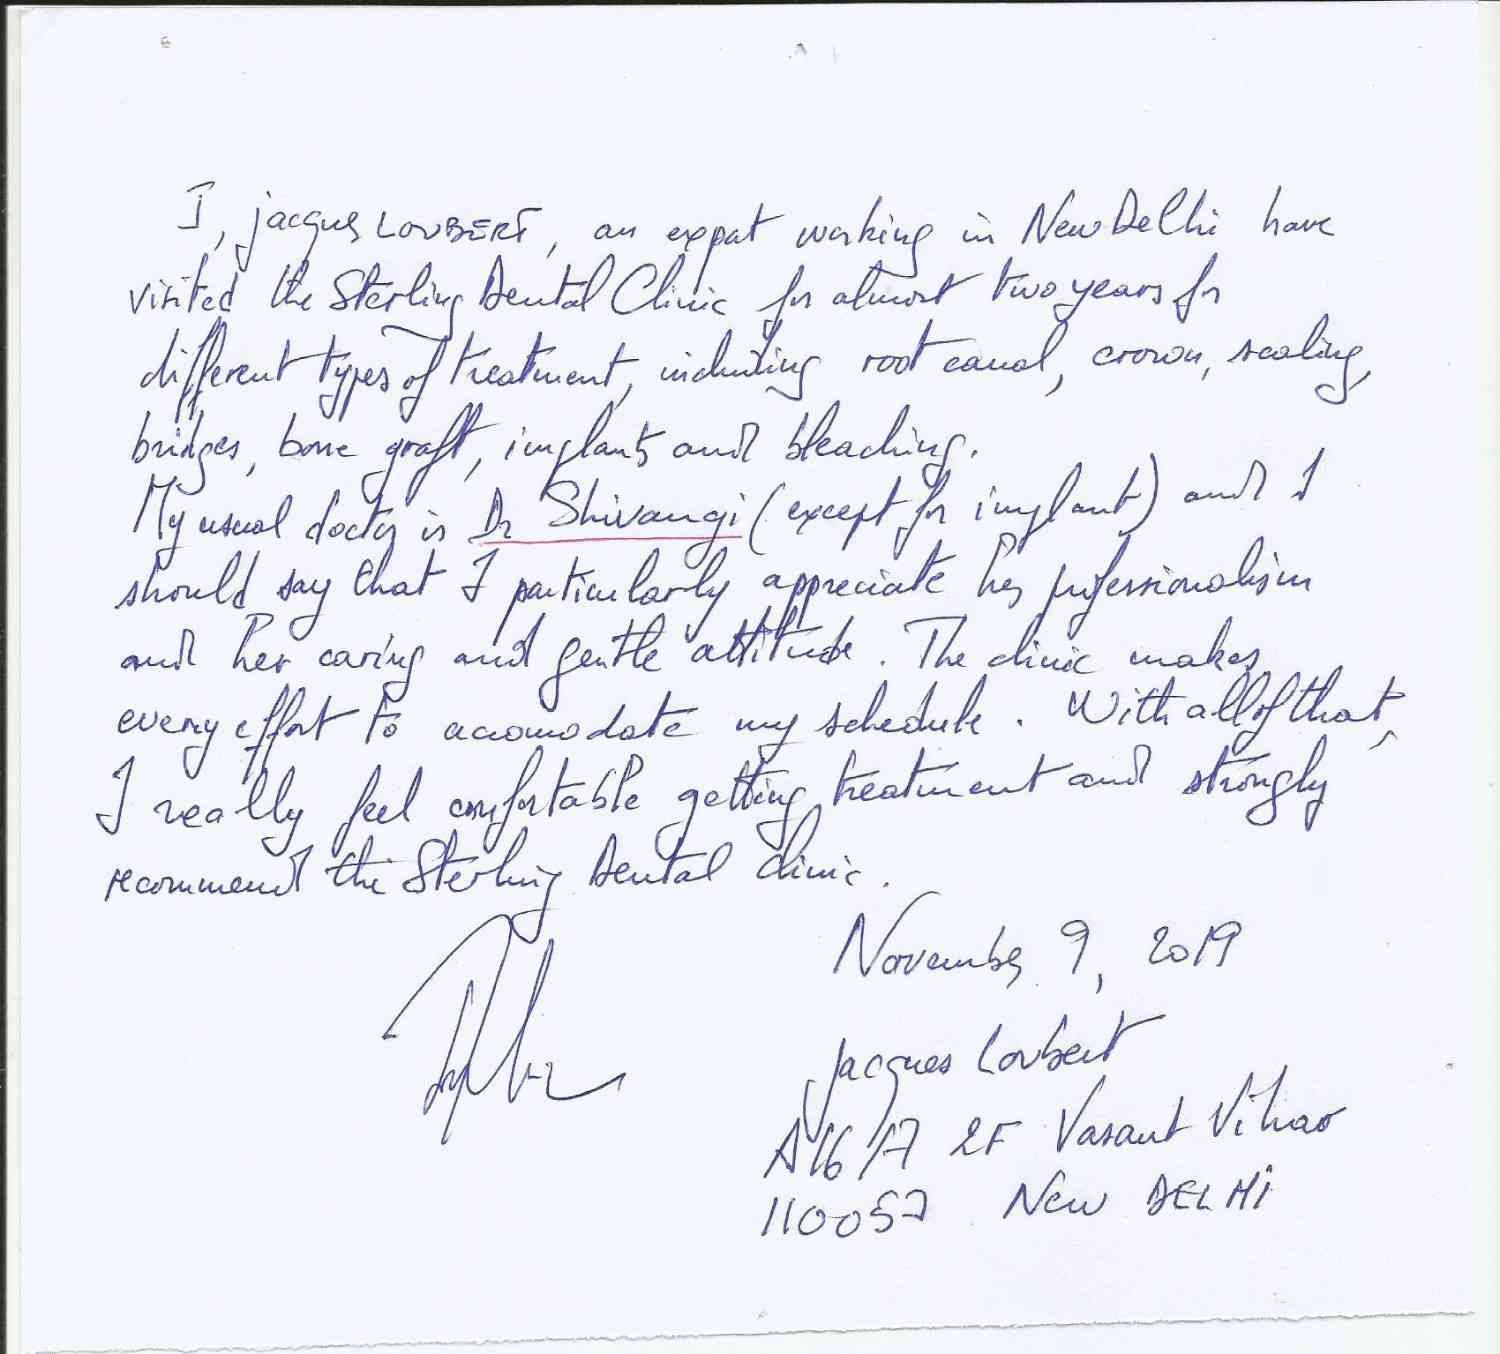 I, jacques LOUBERT, an expat working in New Delhi have
visited the Sterling Dental Clinic for almost two years for
different types of treatment, including root canal, crown, scaling,
bridges, bone graft, implants and bleaching.
My usual doctor is Dr Shivangi (except for implant) and I
should say that I particularly appreciate her professionalism
and her caring and gentle attitude. The clinic makes
every effort to accomodate my schedule. With all of that,
I really feel comfortable getting treatment and strongly
recommend the Sterling Dental clinic.
November 9, 2019
Jacques Loubert
A16/17 2F Vasant Vihar
110057 New DELHi